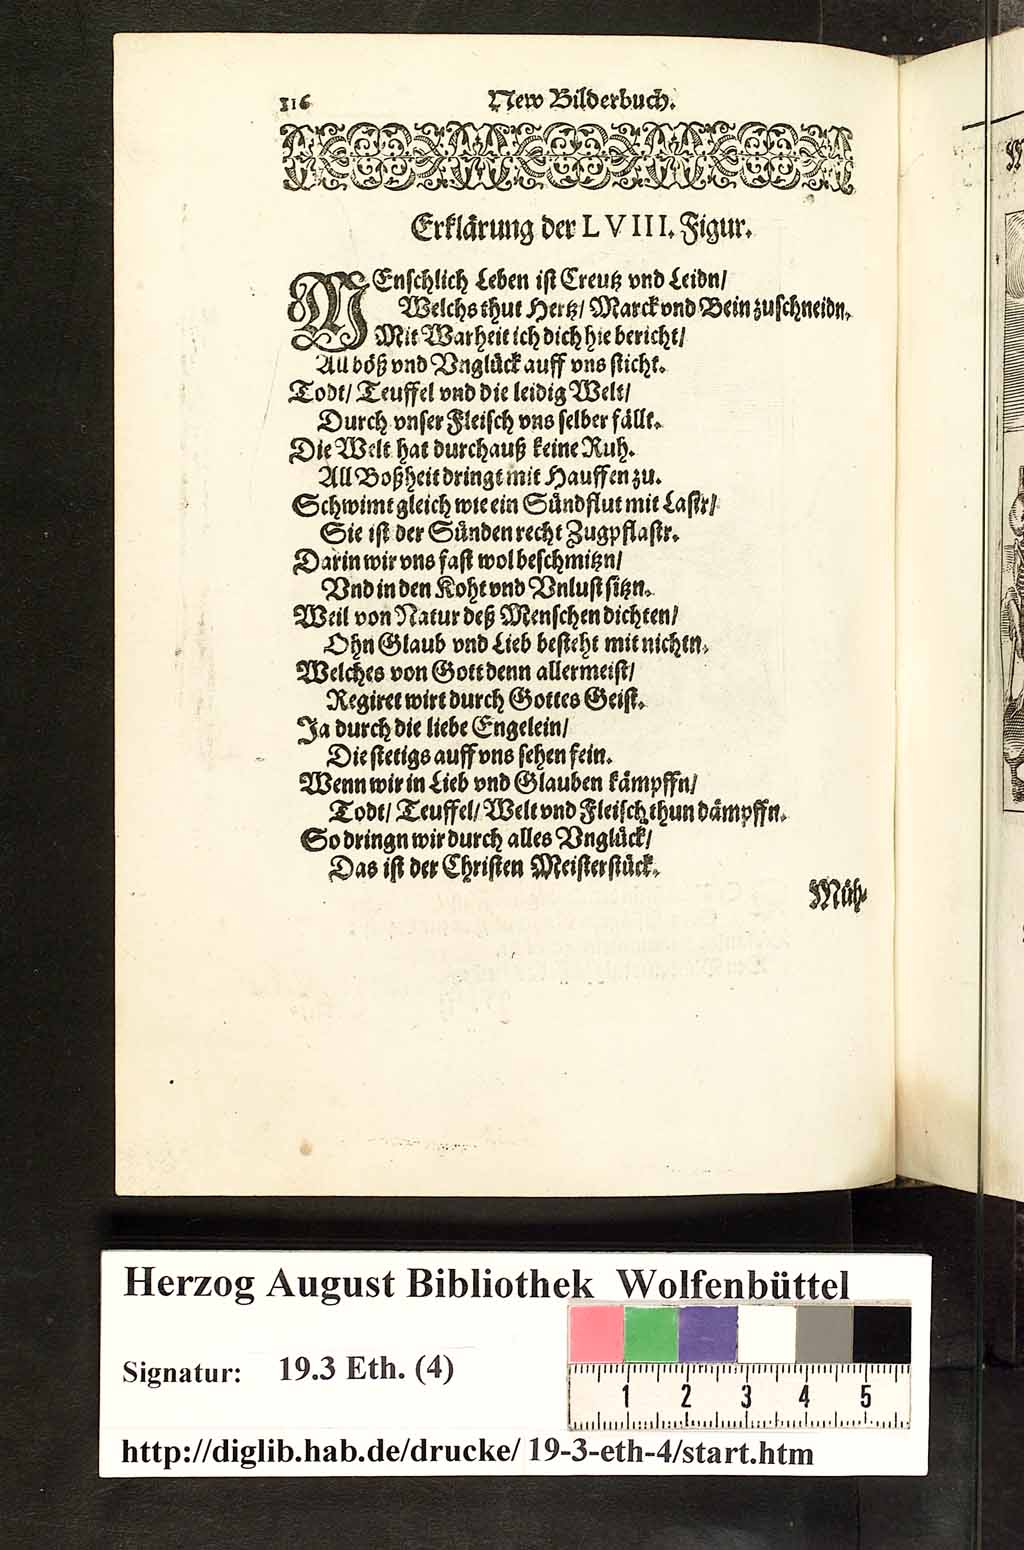 116 New Bilderbuch.
Erklärung der LVIII. Figur.
MEnschlich Leben ist Creutz vnd Leidn/
Welchs thut Hertz/ Marck vnd Bein zuschneidn.
Mit Warheit ich dich hie bericht/
All böß vnd Vnglück auff vns sticht.
Todt/ Teuffel vnd die leidig Welt/
Durch vnser Fleisch vns selber fällt.
Die Welt hat durchauß keine Ruh.
All Boßheit dringt mit Hauffen zu.
Schwimt gleich wie ein Sündflut mit Lastr/
Sie ist der Sünden recht Zugpflastr.
Darin wir vns fast wol beschmitzn/
Vnd in den Koht vnd Vnlust sitzn.
Weil von Natur deß Menschen dichten/
Ohn Glaub vnd Lieb besteht mit nichtn.
Welches von Gott denn allermeist/
Regiret wirt durch Gottes Geist.
Ja durch die liebe Engelein/
Die stetigs auff vns sehen fein.
Wenn wir in Lieb vnd Glauben kämpffn/
Todt/ Teuffel/ Welt vnd Fleisch thun dämpffn.
So dringn wir durch alles Vnglück/
Das ist der Christen Meisterstück.
Müh-
Herzog August Bibliothek Wolfenbüttel
Signatur: 19.3 Eth. (4)
1 2 3 4 5
http://diglib.hab.de/drucke/ 19-3-eth-4/start.htm